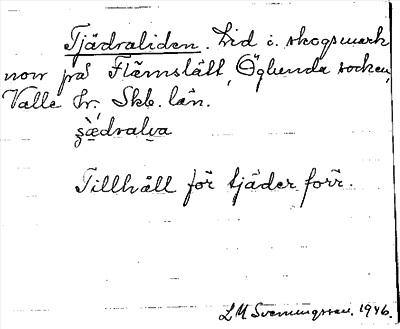 Tjädraliden. Lid i skogsmark
norr på Flämslätt, Öglunda socken,
Valle hr, Skb. län.
Tillhåll för tjäder förr.
L M Svenungsson. 1946.